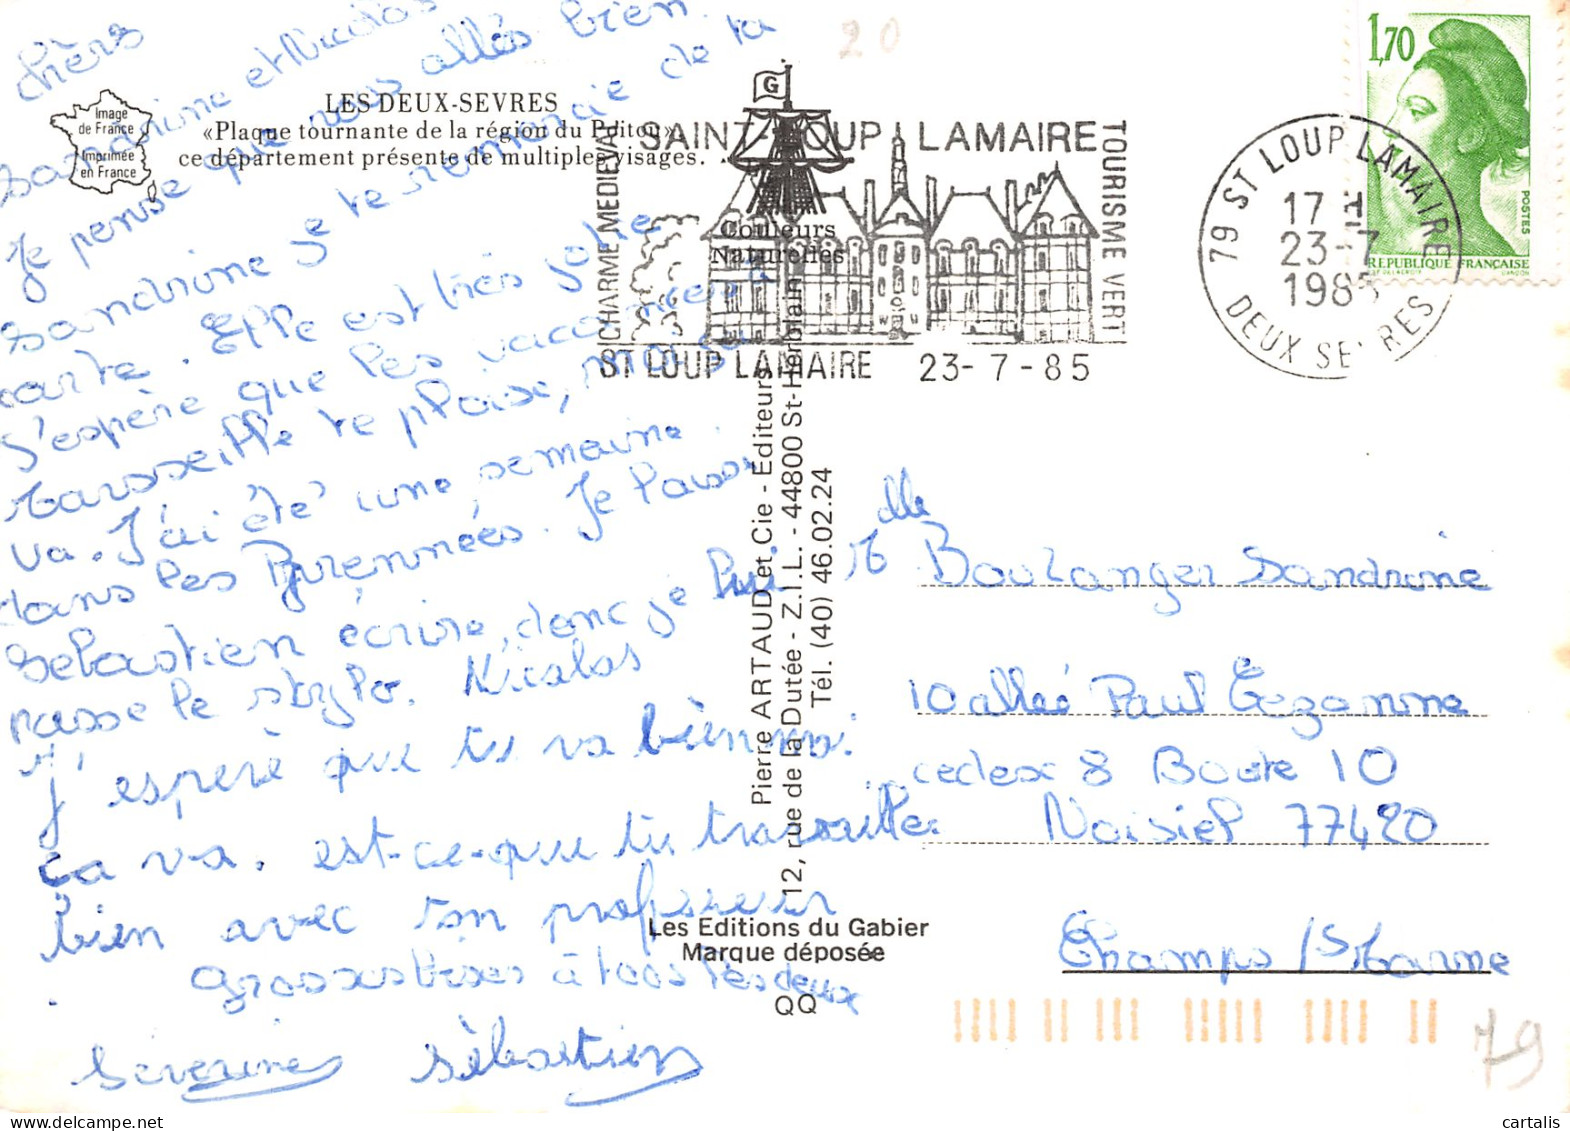 chers
Sandrine et Nicolas
Je pense que vous allés bien
Sandrine je te remercie de ta
carte. Elle est très jolie
J'espère que les vacances à
Marsseille te plaise, moi sa
va. J'ai été une semaine
dans les Pyrennées. Je laisse
Sébastien écrire, donc je lui
passe le stylo.
J'espère que tu va bien
Nicolas
ça va. est-ce-que tu travaille
bien avec ton professeur
grosses bises à tous les deux
Séverine Sèbastien
Image
de France
Imprimée
en France
LES DEUX-SEVRES
«Plaque tournante de la région du Poitou»
ce département présente de multiples visages.
20
G
Couleurs
Naturelles
SAINT-LOUP LAMAIRE
CHARME MEDIEVAL
TOURISME VERT
ST LOUP LAMAIRE 23-7-85
79 ST LOUP LAMAIRE
17 H
23-7
1985
DEUX SEVRES
1,70
POSTES
REPUBLIQUE FRANÇAISE
Pierre ARTAUD et Cie - Editeurs
12, rue de la Dutée - Z.I.L. - 44800 St-Herblain
Tél. (40) 46.02.24
Les Editions du Gabier
Marque déposée
QQ
Mlle Boulanger Sandrine
10 allée Paul Cezanne
cedex 8 Boite 10
Noisiel 77420
Champs /s Marne
79
cartalis